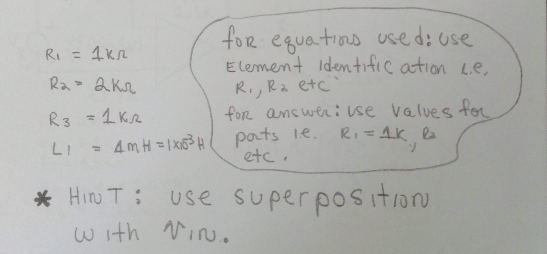 R1 = 1KΩ
R2 = 2KΩ
R3 = 1KΩ
L1 = 1mH = 1x10^-3 H
for equations used: use
Element Identification i.e,
R1, R2 etc
for answer: use values for
parts ie. R1 = 1K,
etc.
* HinT: use superposition
with Vin.